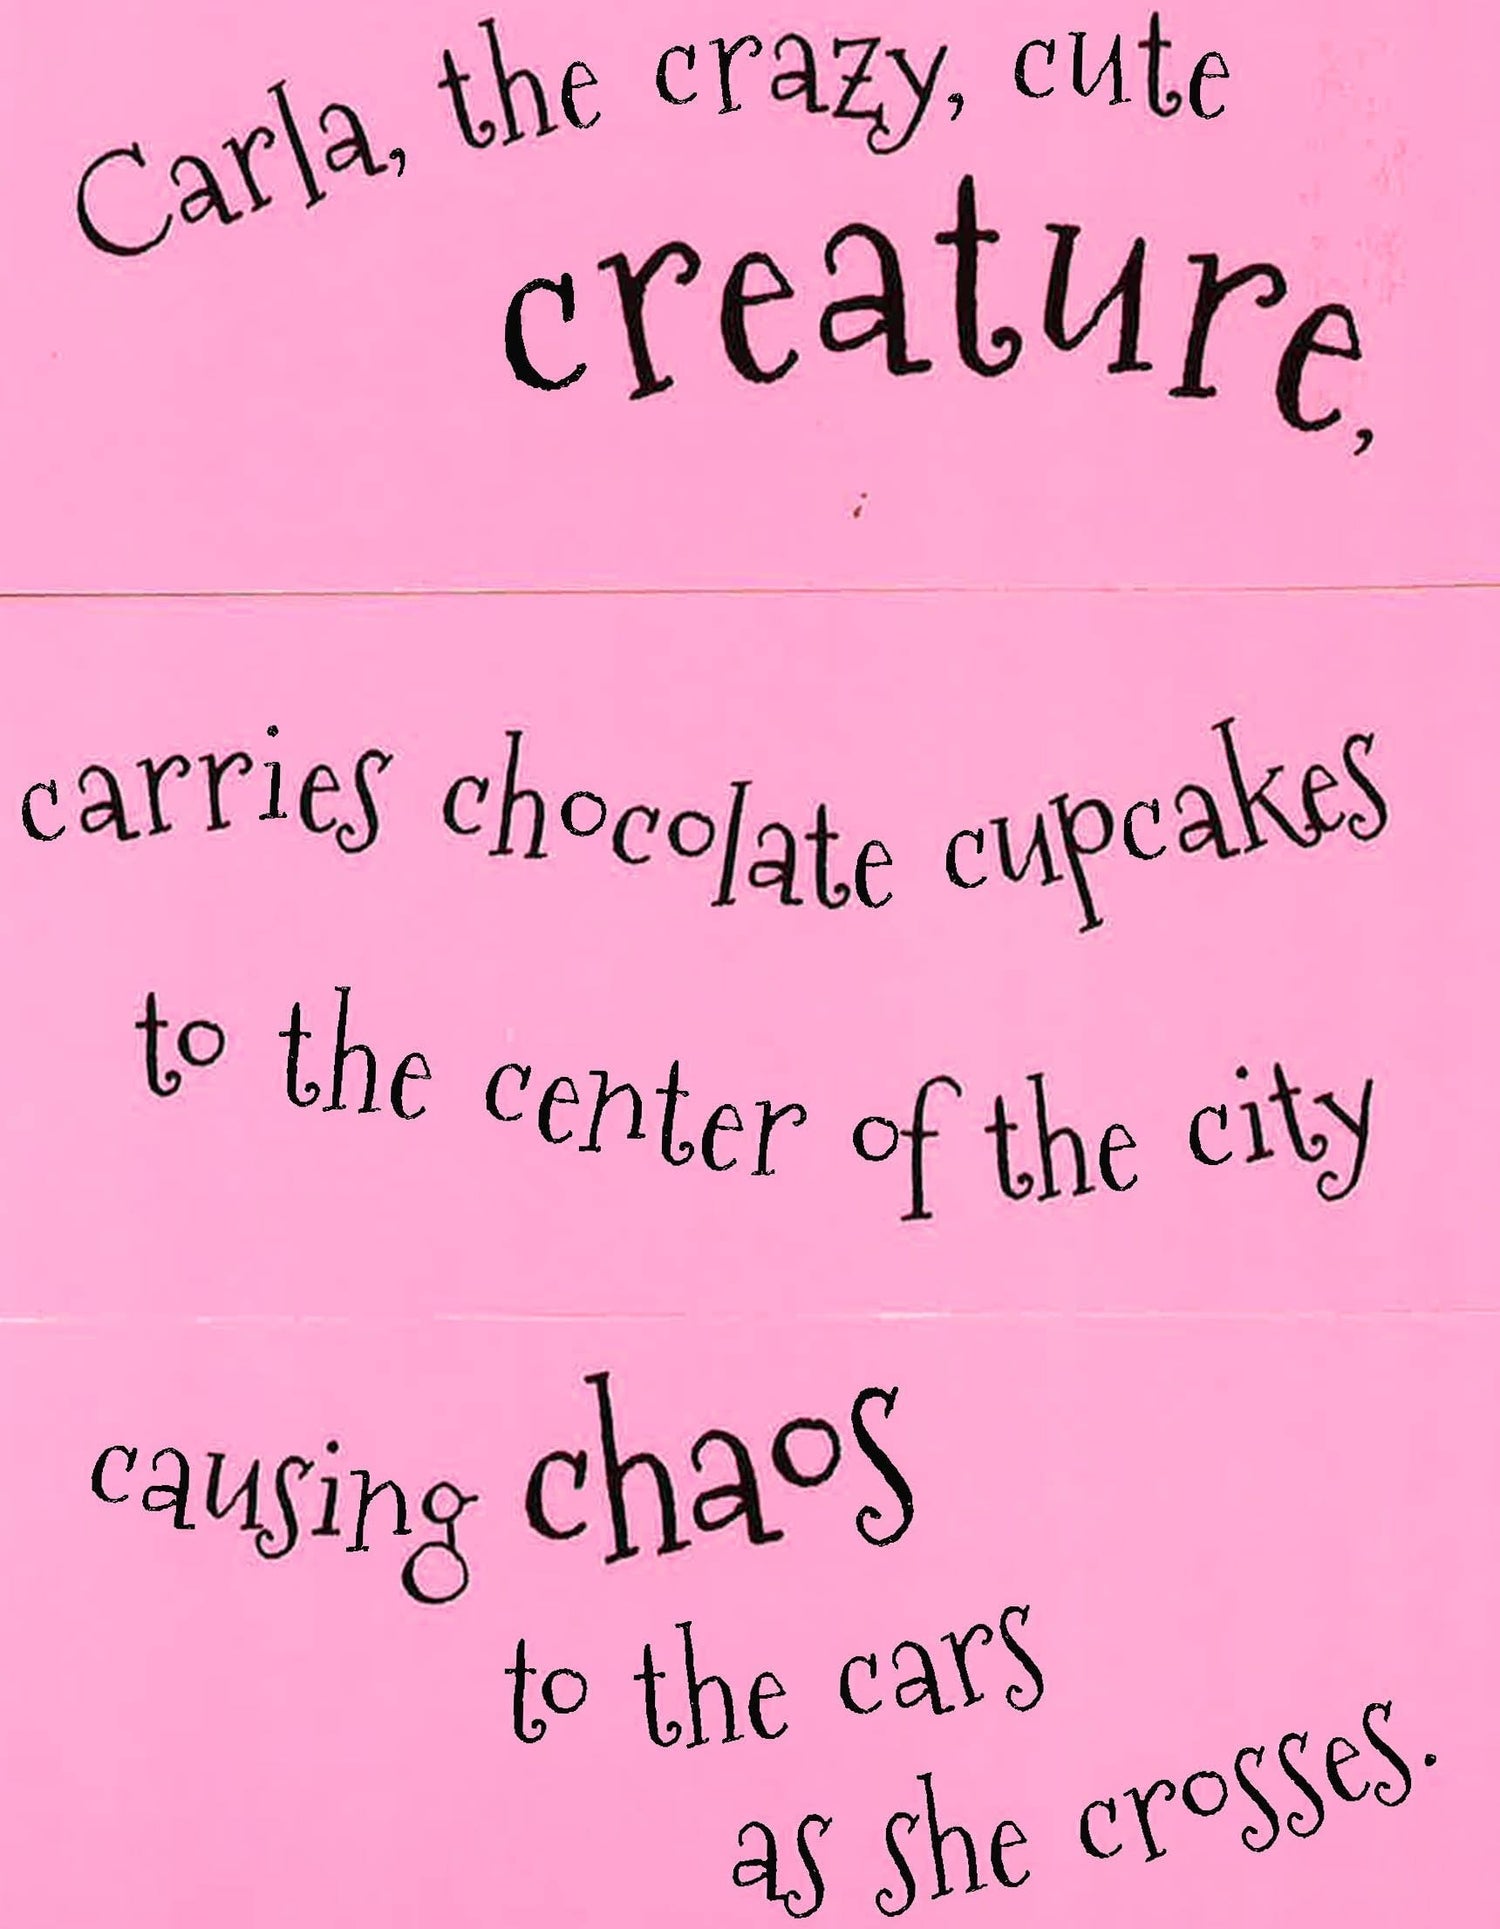 Carla, the crazy, cute
creature,
carries chocolate cupcakes
to the center of the city
causing chaos
to the cars
as she crosses.